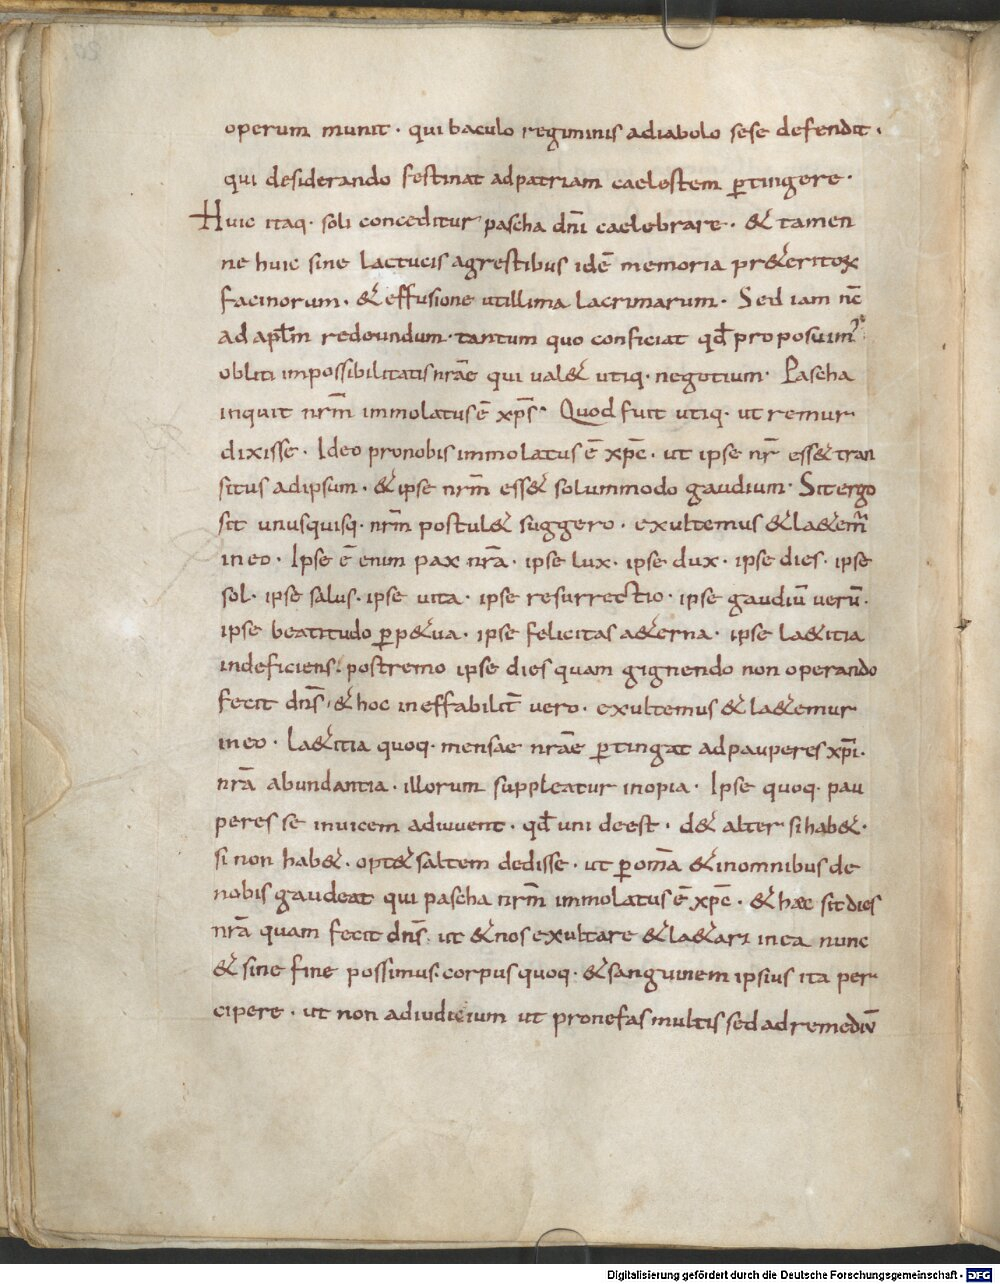 operum munit · qui baculo regiminis adiabolo sese defendit ·
qui desiderando festinat adpatriam caelestem ꝑtingere ·
Huic itaq· soli conceditur pascha dnī caelebrare · & tamen
ne huic sine lactucis agrestibus idē memoria pr&eritoꝝ
facinorum · & effusione utillima lacrimarum · Sed iam nc̄
ad apl̄m redeundum · tantum quo conficiat qd̄ proposuimꝰ
obliti impossibilitatis nrāe qui val& utiq· negotium · Pascha
inquit nrm̄ immolatus ē xp̄s · Quod fuit utiq· ut remur
dixisse · Ideo pronobis immolatus ē xp̄c · ut ipse nr̄ ess& tran
situs adipsum · & ipse nrm̄ ess& solummodo gaudium · Sit ergo
sit unusquisq· nrm̄ postul& suggero · exultemus & la&em̄
in eo · Ipse ē enim pax nrā · ipse lux · ipse dux · ipse dies · ipse
sol · ipse salus · ipse uita · ipse resurrectio · ipse gaudiū uerū ·
ipse beatitudo ꝑp&ua · ipse felicitas a&erna · ipse la&itia
indeficiens · postremo ipse dies quam gignendo non operando
fecit dns̄ · & hoc ineffabilit̄ vero · exultemus & la&emur
in eo · la&itia quoq· mensae nrāe ꝑtingat adpauperes xp̄i ·
nrā abundantia · illorum suppleatur inopia · Ipse quoq· pau
peres se inuicem adiuuent · qd̄ uni deest · d& alter si hab& ·
si non hab& · opt& saltem dedisse · ut ꝑ omā & inomnibus de
nobis gaudeat qui pascha nrm̄ immolatus ē xp̄c · & hæc sit dies
nrā quam fecit dns̄ · ut & nos exultare & la&ari in ea nunc
& sine fine possimus · corpus quoq· & sanguinem ipsius ita per
cipere · ut non adiudicium ut pronefas multis sed ad remediū
Digitalisierung gefördert durch die Deutsche Forschungsgemeinschaft · DFG